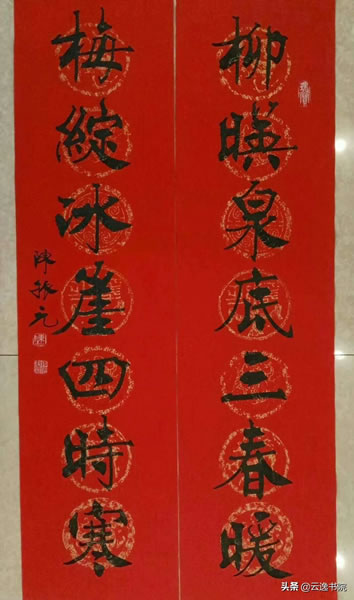 柳暎泉底三春暖
梅綻冰崖四時寒
陈振元
头条 @云逸书院